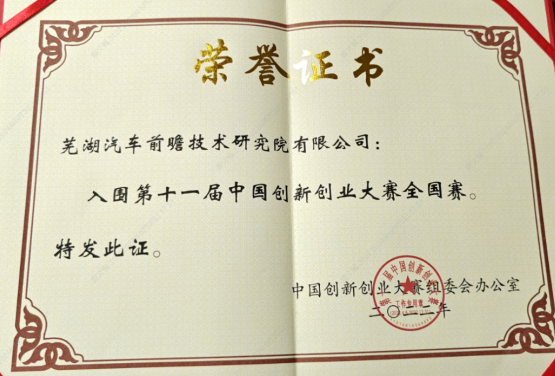 荣誉证书
芜湖汽车前瞻技术研究院有限公司：
入围第十一届中国创新创业大赛全国赛。
特发此证。
中国创新创业大赛组委会办公室
二〇二二年